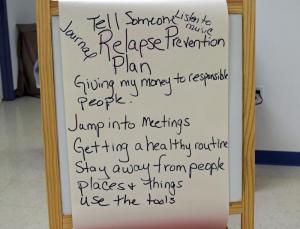 Tell Someone
Listen to
music
Journal
Relapse Prevention
Plan
Giving my money to responsible
people.
Jump into Meetings
Getting a healthy routine
Stay away from people
places & things
use the tools